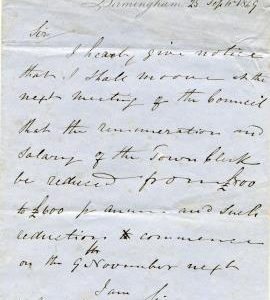 Birmingham 25 Sept 1849
Sir
I hereby give notice
that I shall moove at the
next Meeting of the Council
that the renumeration and
salary of the Town Clerk
be reduced from £800
to £600 pr annum and such
reduction to commence
on the 9th November next
I am Sir